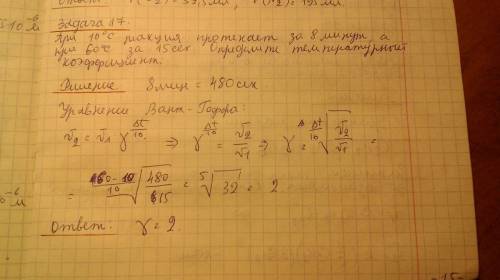 Ответ: V(
Задача 17.
При 10°С реакция протекает за 8 минут, а
при 60°С за 15 сек Определите температурный
коэффициент.
Решение 8 мин = 480 сек
Уравнение Вант-Гоффа:
v₂ = v₁ γ^(Δt/10) ⇒ γ^(Δt/10) = v₂/v₁ ⇒ γ = ^(Δt/10)√(v₂/v₁) =
= ^((60-10)/10)√(480/15) = ⁵√32 = 2
Ответ: γ = 2.